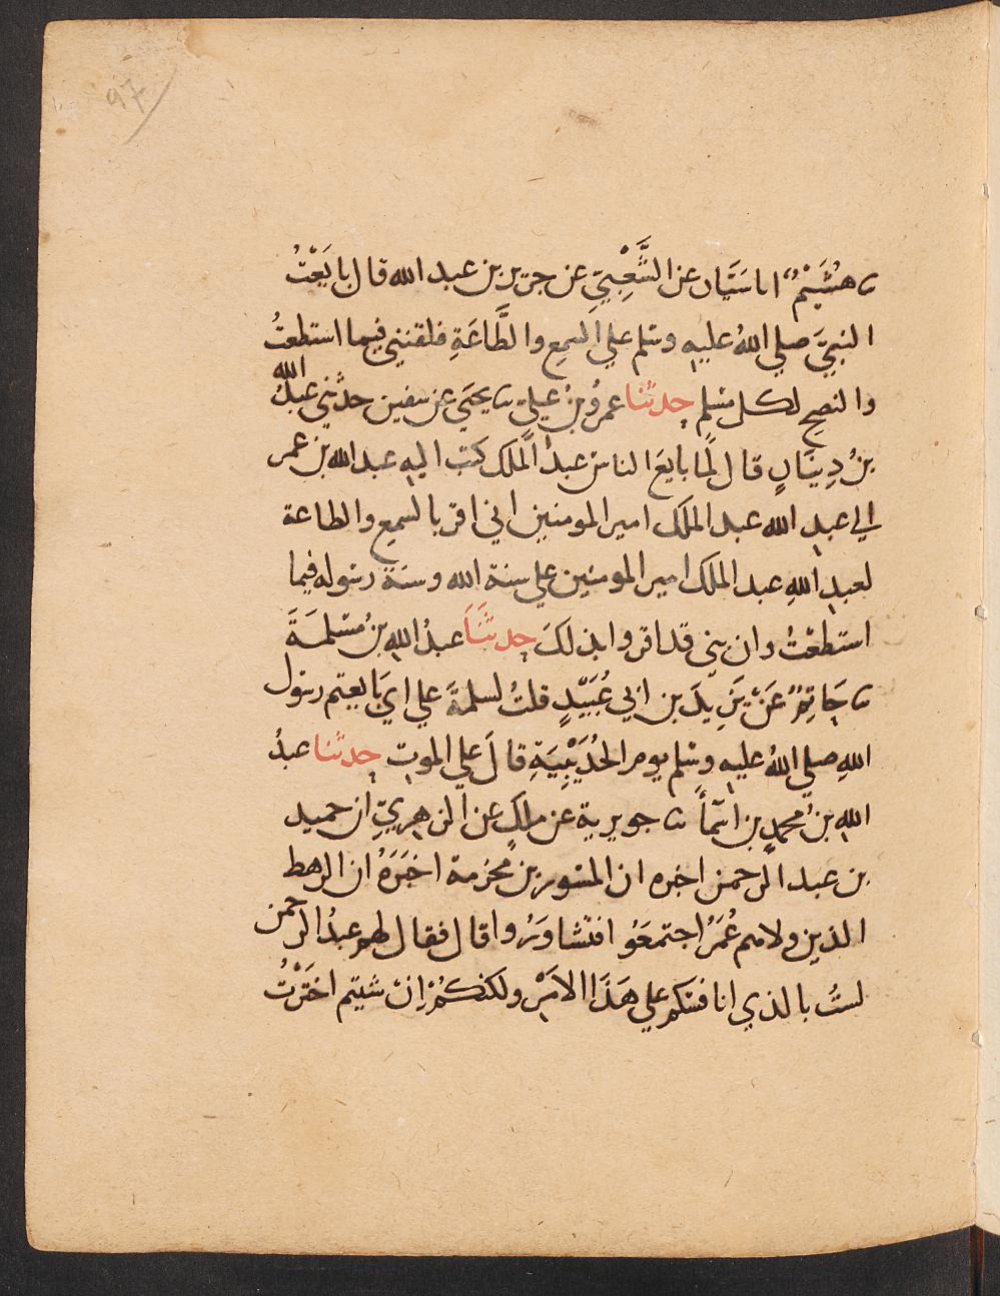 97
ثنا هُشَيْمٌ انا سَيَّار عن الشَّعْبِيِّ عن جرير بن عبد الله قال بايَعْتُ
النبيَّ صلي اللهُ عليهِ وسَلم علي السمعِ والطَّاعَةِ فلقنني فيما استطعتُ
والنصحِ لكل مسْلمٍ حدثنا عمرُو بنُ عليٍّ ثنا يحيَي عن سفين حدثني عبدُ الله
بنُ دِينَارٍ قال لمَّا بايعَ الناسُ عبدَ الملك كتب اليهِ عبد الله بن عمر
الي عبدِ الله عبد الملك امير المومنين اني اقر بالسمع والطاعة
لعبدِ اللهِ عبد الملك امير المومنين علي سنة الله وسنة رسوله فيما
استطعْتُ وان بني قد اقروا بذلكَ حدثَنَا عبدُ اللهِ بنُ مَسْلمَةَ
ثنا حَاتِمٌ عَنْ يَزِيدَ بن ابي عُبَيْدٍ قلتُ لسلمةَ علي ايِّ بَايعتم رسول
اللهِ صلي اللهُ عليهِ وسَلم يوم الحُدَيْبِيَةِ قالَ علي الموتِ حدثنا عبدُ
اللهِ بنُ محمدِ بن اسْمآَ ثنا جويرية عن ملكٍ عن الزهريِّ ان حميد
بن عبد الرحمن اخبره ان المسْور بن مخرمة اخبَرَهُ ان الرهط
الذين ولاهم عُمَرُ اجتمعُوا فتشاوَرُوا قال فقال لهم عبدُ الرحمن
لستُ بالذي انافسكم علي هَذَا الامْرِ ولكنكُمْ اِنْ شيتم اختَرْتُ